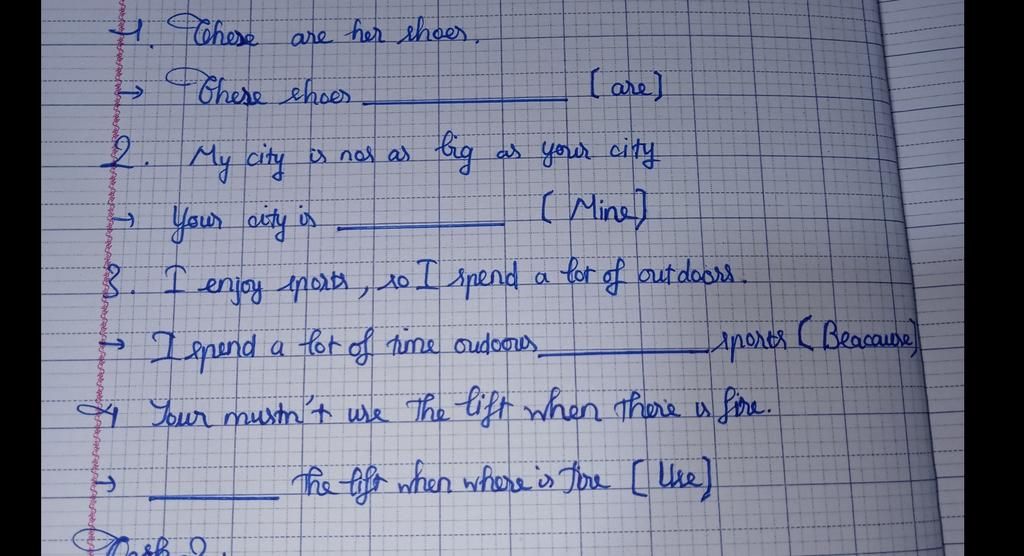 1. These are her shoes.
→ These shoes ____________ [are]
2. My city is not as big as your city
→ Your city is __________ [Mine]
3. I enjoy sports, so I spend a lot of outdoors.
→ I spend a lot of time oudoors __________ sports (Beacause)
4 Your mustn't use the lift when there is fire.
→ ________ the lift when where is fire [Use]
Task 2.